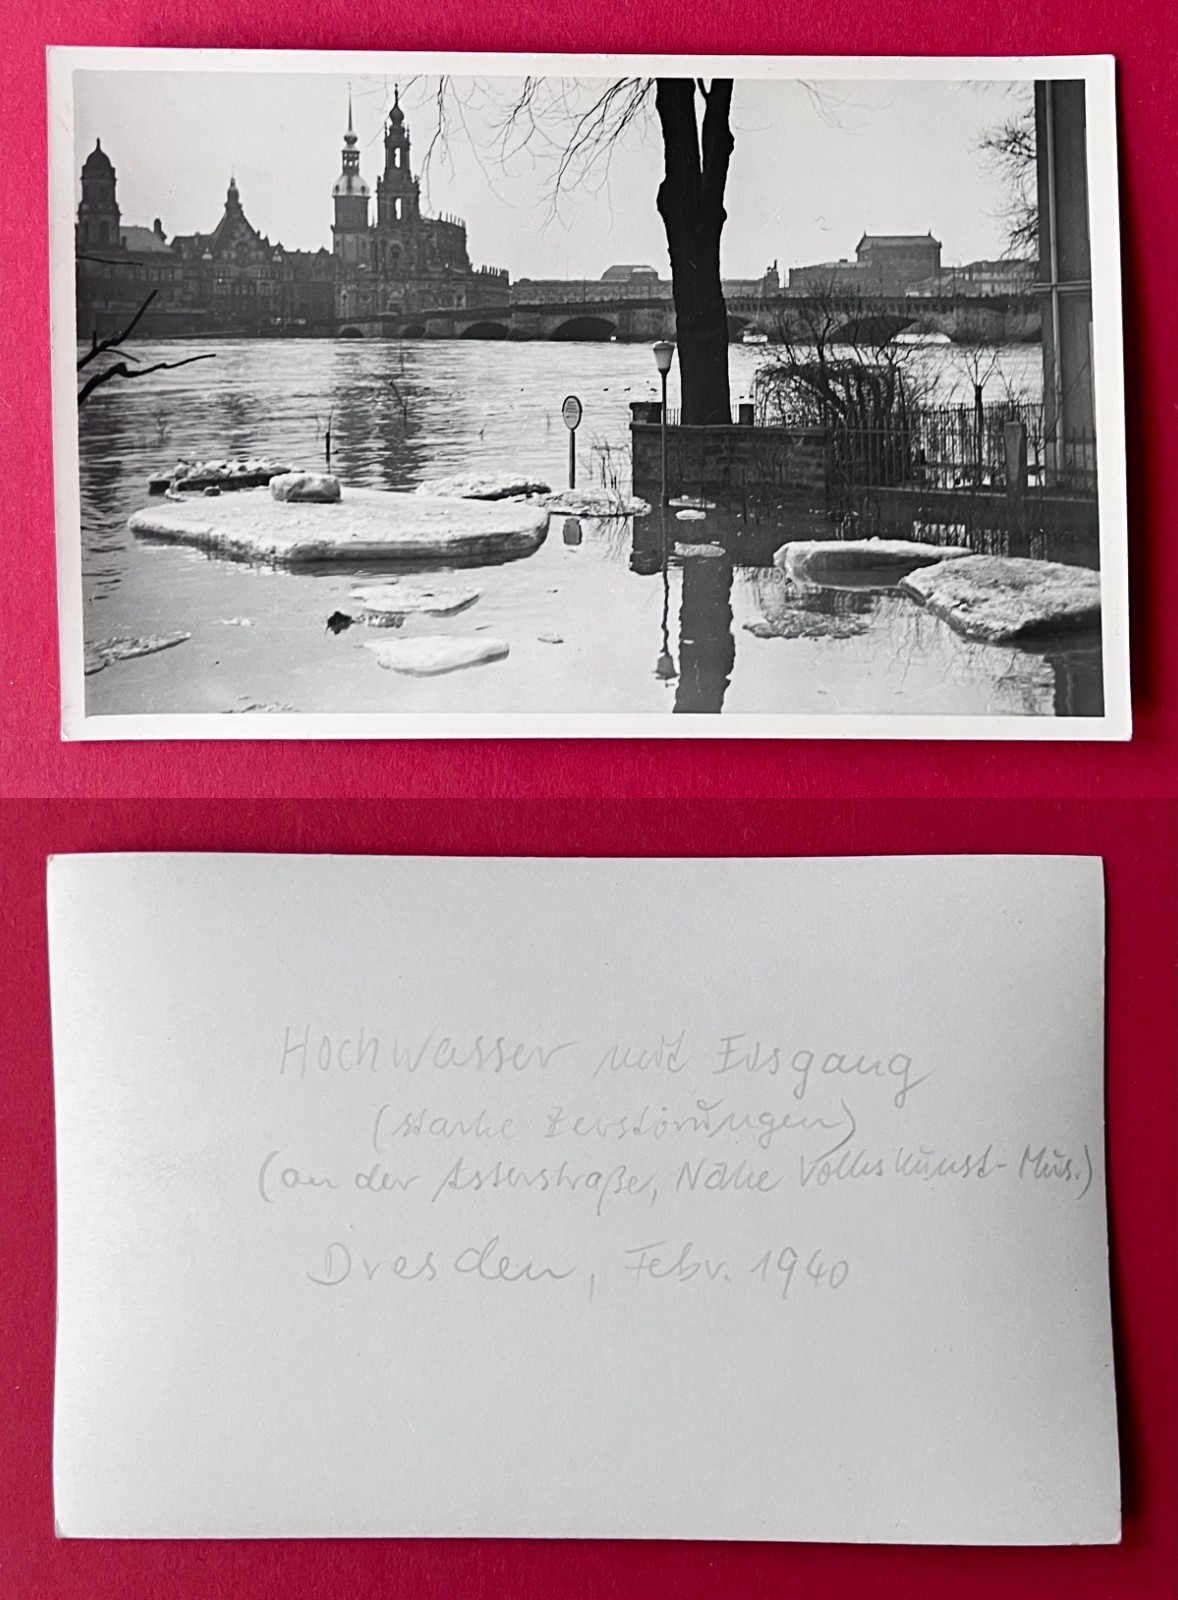 Hochwasser mit Eisgang
(starke Zerstörungen)
(an der Asterstraße, Nähe Volkskunst-Mus.)
Dresden, Febr. 1940